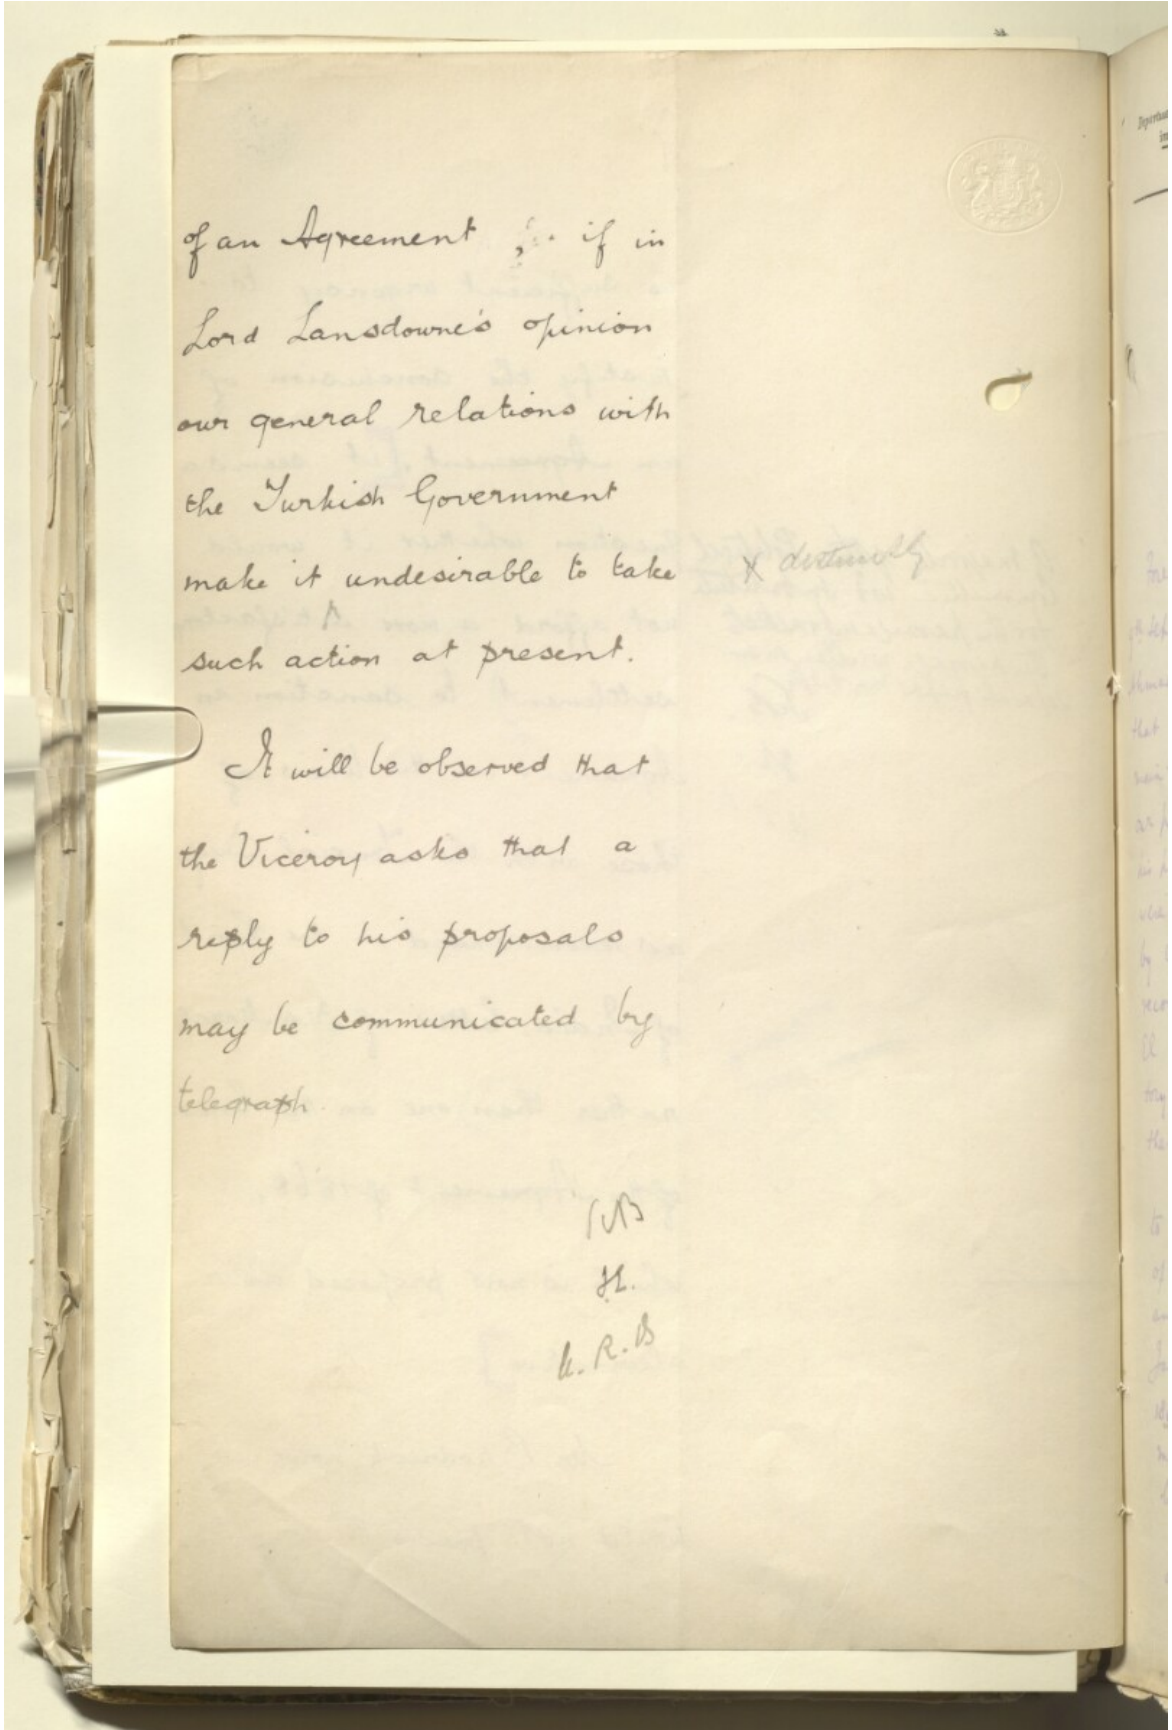 of an Agreement ; if in
Lord Lansdowne's opinion
our general relations with
the Turkish Government
make it undesirable to take
x distinctly
such action at present.
It will be observed that
the Viceroy asks that a
reply to his proposals
may be communicated by
telegraph.
H.
R. B